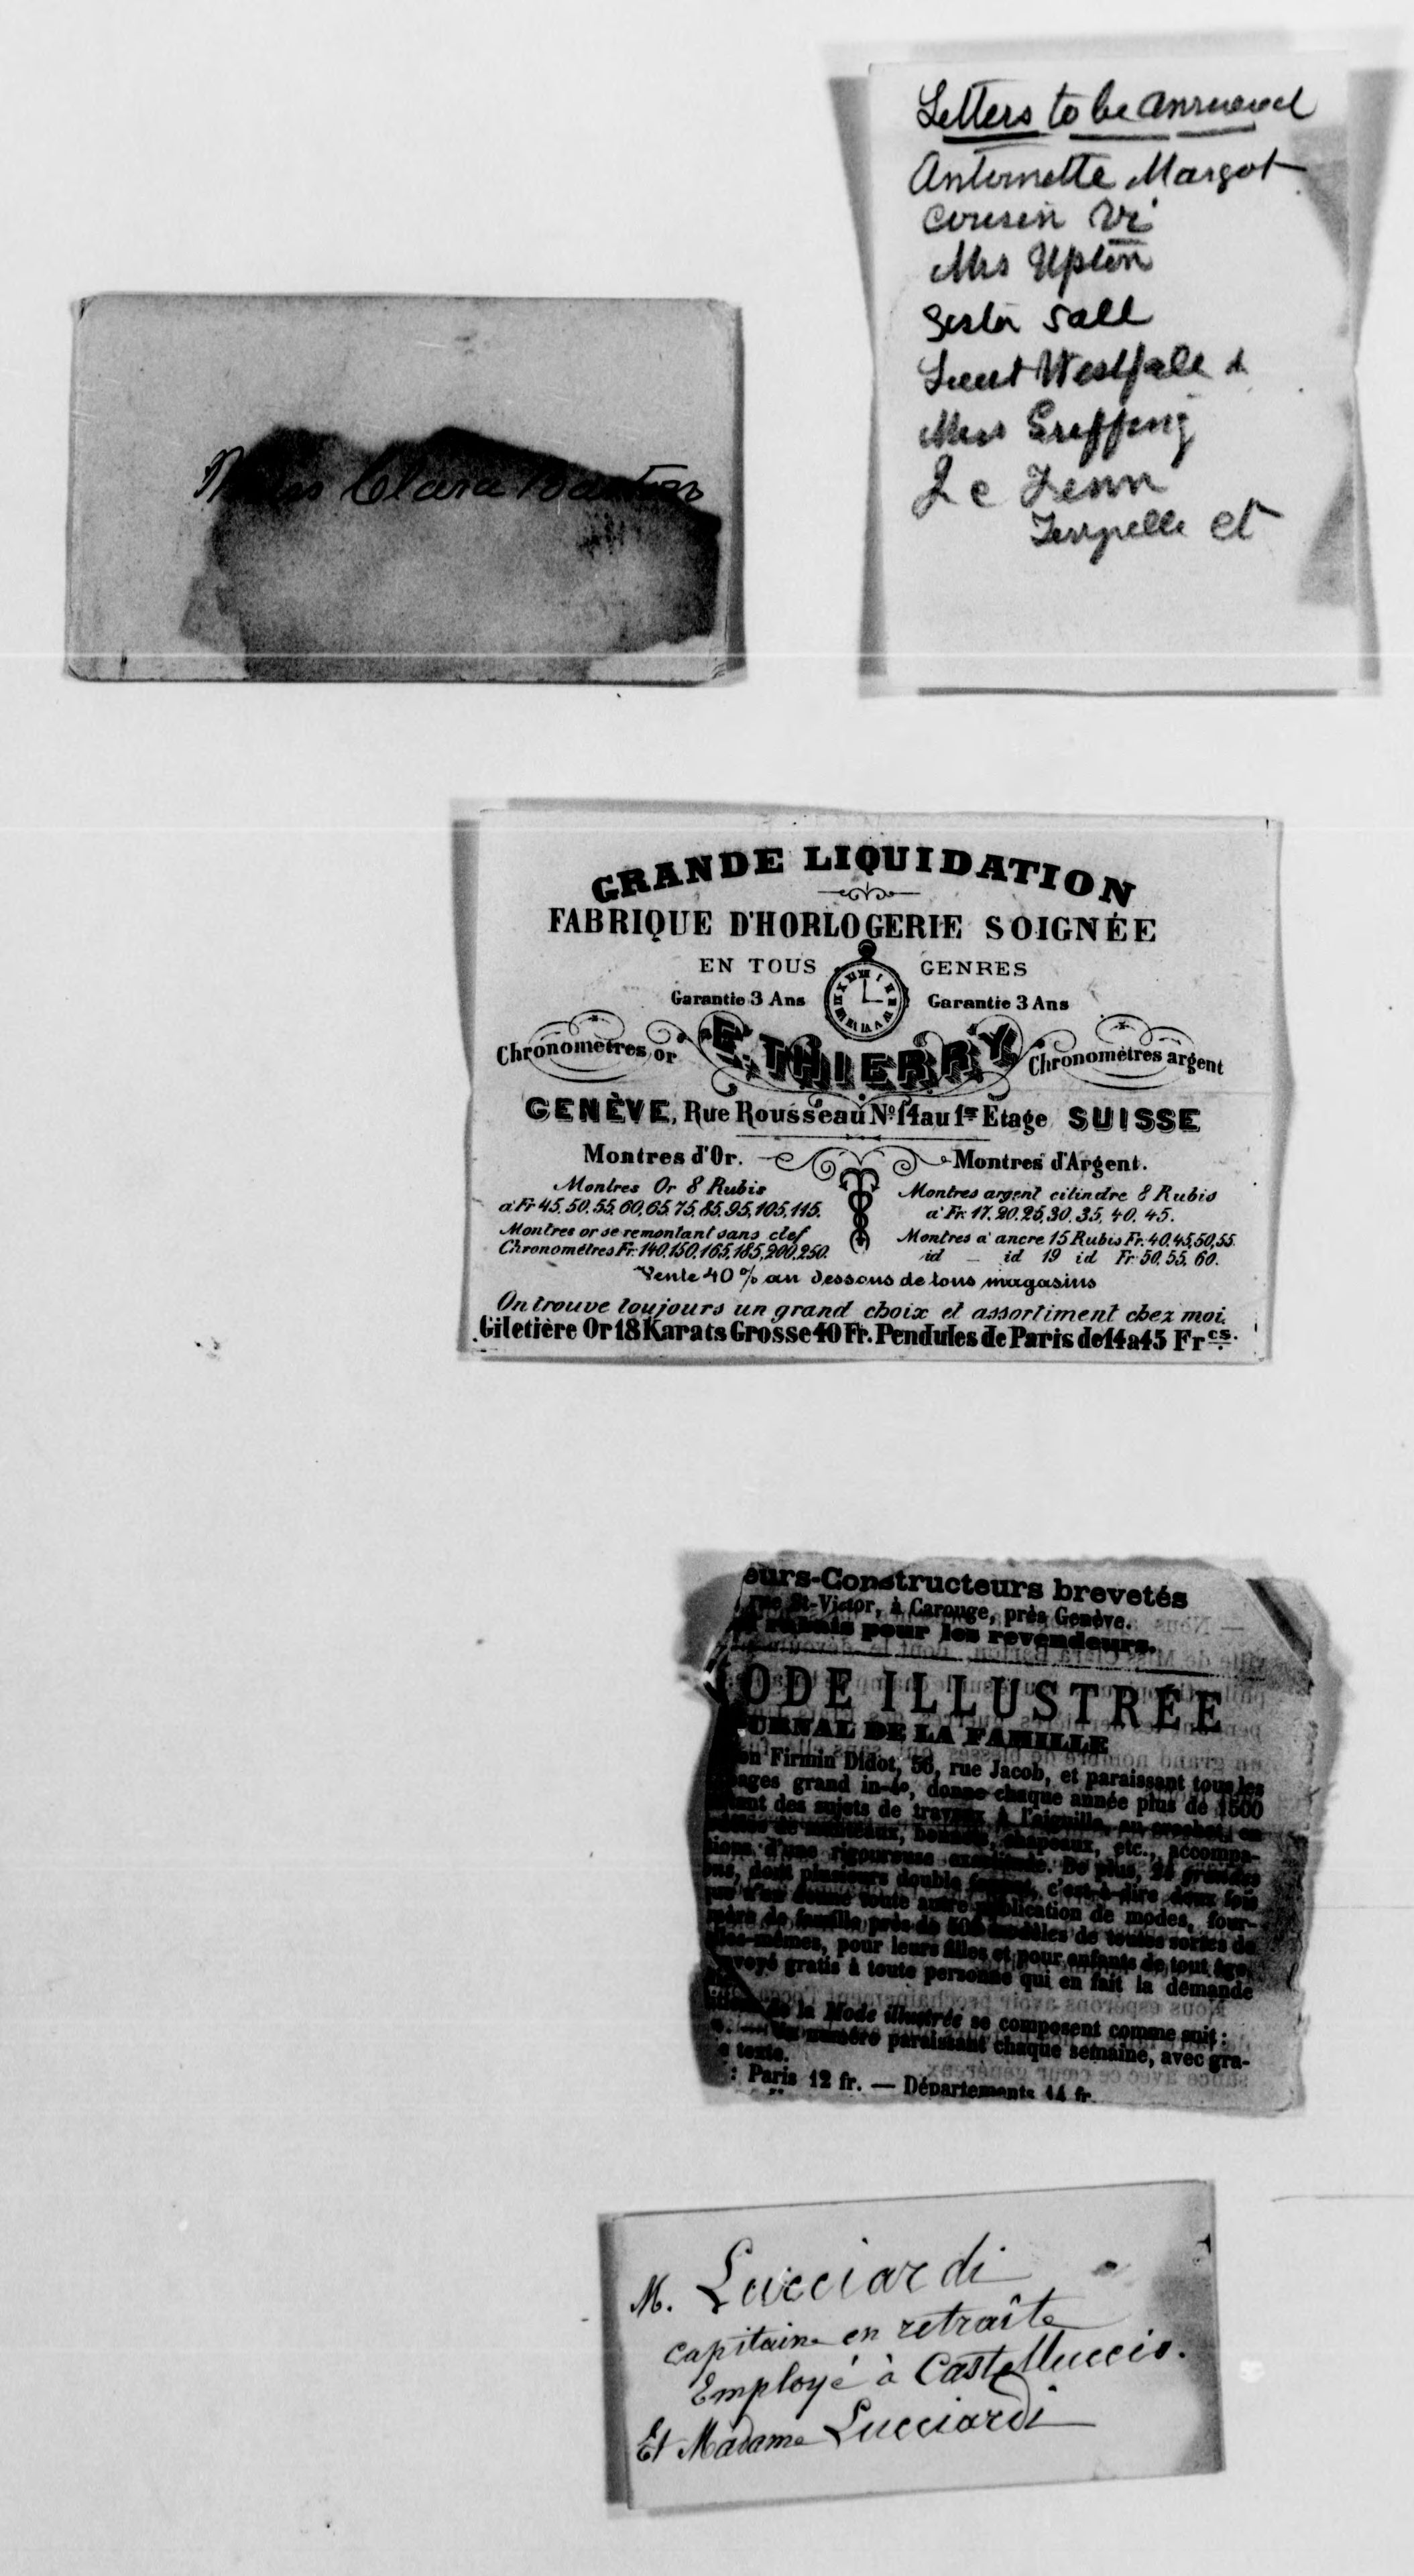 Miss Clara Barton
Letters to be answered
Antoinette Margot
Cousin Vi
Mrs Upton
Sister Sall
Lieut Westfale &
Miss Griffing
Le Tenn
et
GRANDE LIQUIDATION
FABRIQUE D'HORLOGERIE SOIGNÉE
EN TOUS GENRES
Garantie 3 Ans Garantie 3 Ans
Chronomètres or E. THIERRY Chronomètres argent
GENÈVE, Rue Rousseau No. 14 au 1er Etage SUISSE
Montres d'Or. Montres d'Argent.
Montres Or 8 Rubis
à Fr. 45, 50, 55, 60, 65, 75, 85, 95, 105, 115.
Montres or se remontant sans clef
Chronomètres Fr. 140, 150, 165, 185, 200, 250.
Montres argent cilindre 8 Rubis
à Fr. 17. 20. 25, 30. 35, 40. 45.
Montres à ancre 15 Rubis Fr. 40, 45, 50, 55.
id — id 19 id Fr. 50. 55. 60.
Vente 40 % au dessous de tous magasins
On trouve toujours un grand choix et assortiment chez moi.
Giletière Or 18 Karats Grosse 40 Fr. Pendules de Paris de 14 a 45 Frcs.
eurs-Constructeurs brevetés
rue St-Victor, à Carouge, près Genève.
rabais pour les revendeurs.
ODE ILLUSTRÉE
URNAL DE LA FAMILLE
Firmin Didot, 56, rue Jacob, et paraissant tous les
pages grand in-4o, donne chaque année plus de 1500
des sujets de travaux à l'aiguille, au crochet, en
chapeaux, etc., accompa-
d'une rigoureuse exactitude. De plus, 24 grandes
dont plusieurs double c'est-à-dire deux fois
toute autre publication de modes, four-
de famille près de 500 modèles de toutes sortes de
elles-mêmes, pour leurs filles et pour enfants de tout âge,
envoyé gratis à toute personne qui en fait la demande
de la Mode illustrée se composent comme suit:
Un numéro paraissant chaque semaine, avec gra-
texte.
: Paris 12 fr. — Départements 14 fr.
M. Lucciardi
capitaine en retraite
Employé à Castelluccio.
Et Madame Lucciardi